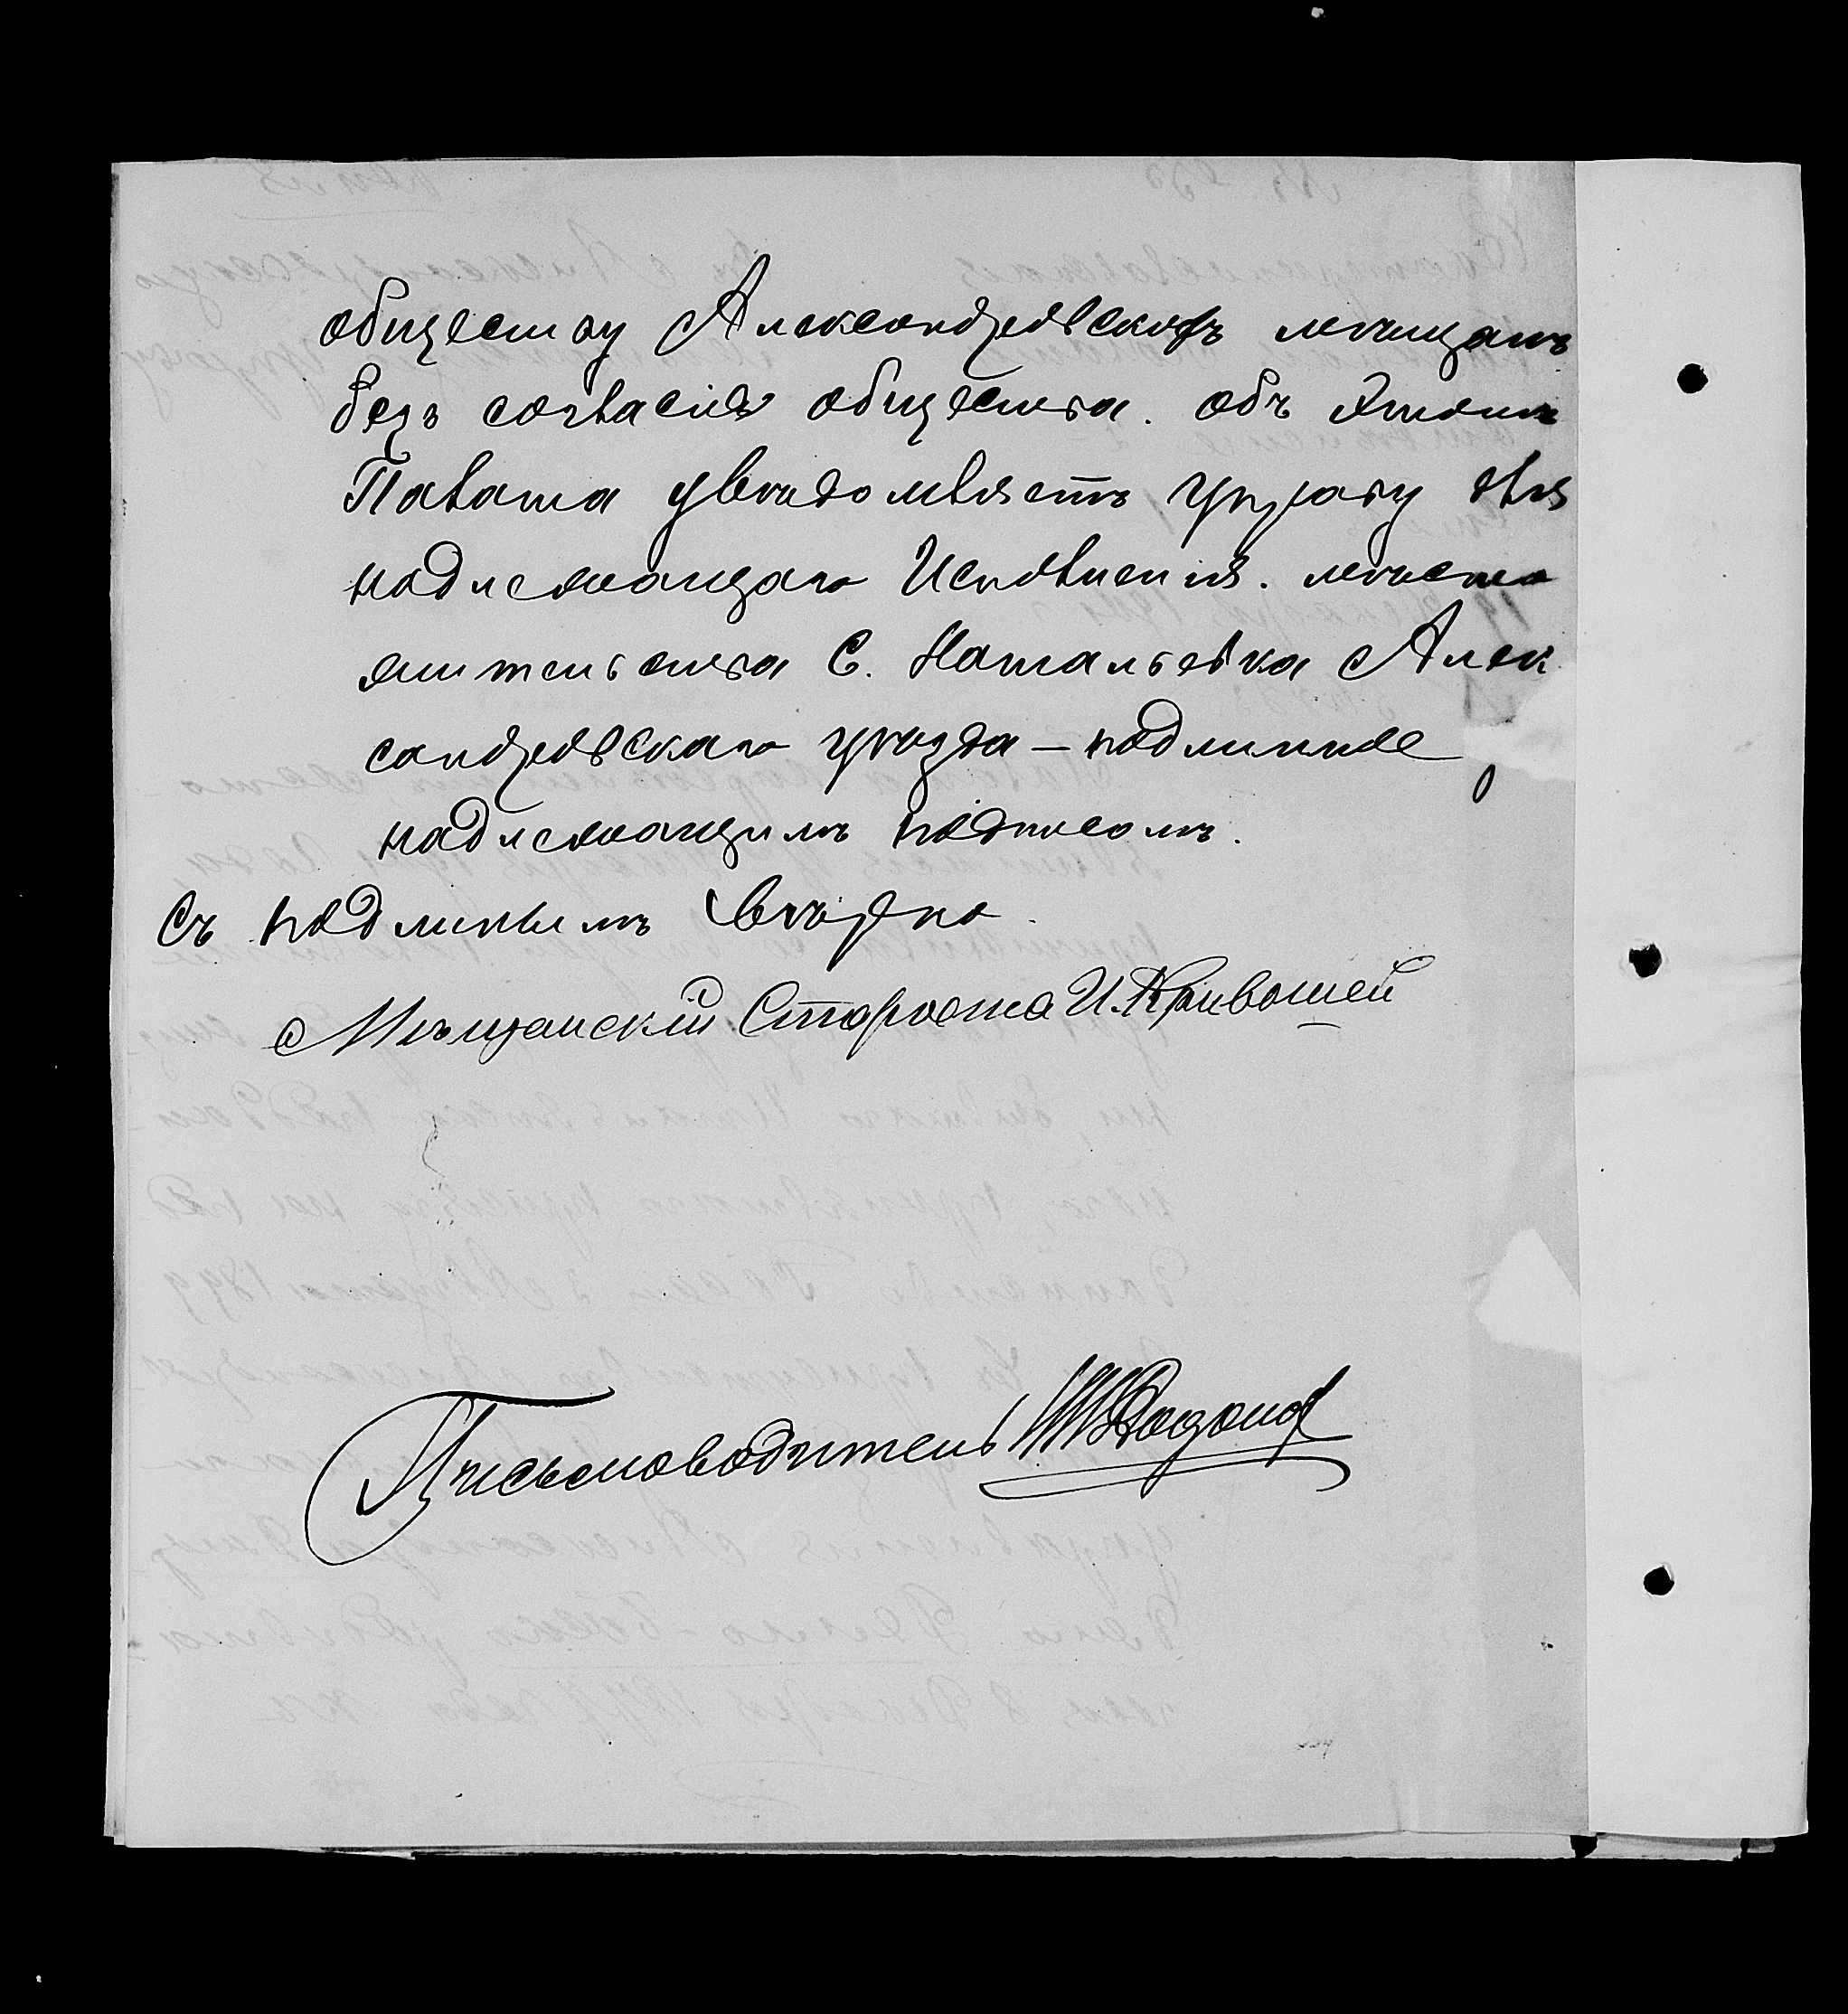 обществу Александровскихъ мѣщанъ
безъ согласія общества. объ этомъ
Палата увѣдомляетъ управу для
надлежащаго Исполненія. мѣсто
жительства С. Натальевка Алек
сандровскаго уѣзда — подлинное
надлежащимъ подписомъ.
Съ подлинымъ вѣрно.
Мѣщанскій Староста И. Кривошей
Письмоводитель